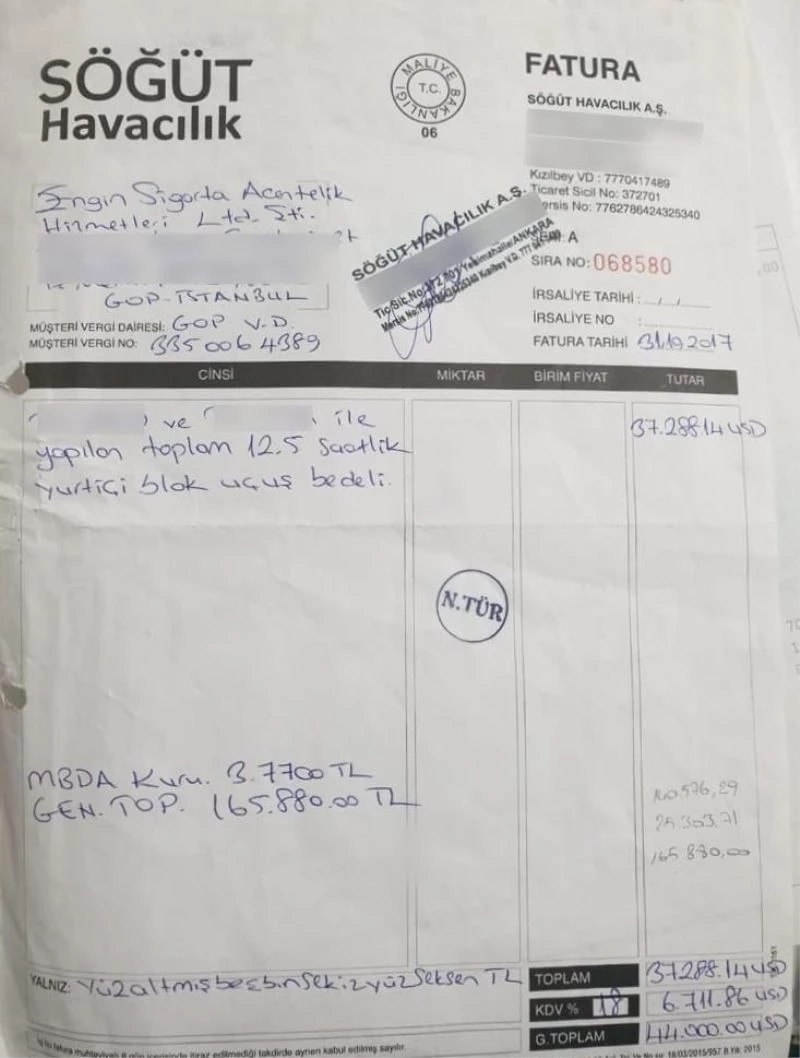 SÖĞÜT
Havacılık
MALİYE BAKANLIĞI
T.C.
06
FATURA
SÖĞÜT HAVACILIK A.Ş.
Kızılbey VD : 7770417489
Ticaret Sicil No: 372701
Mersis No: 7762786424325340
Engin Sigorta Acentelik
Hizmetleri Ltd. Şti.
GOP-İSTANBUL
MÜŞTERİ VERGİ DAİRESİ: GOP V.D.
MÜŞTERİ VERGİ NO: 3350064389
SÖĞÜT HAVACILIK A.Ş.
A
SIRA NO: 068580
İRSALİYE TARİHİ : / /
İRSALİYE NO :
FATURA TARİHİ 31.10.2017
CİNSİ MİKTAR BİRİM FİYAT TUTAR
ve ile
yapılan toplam 12.5 saatlik
yurtiçi blok uçuş bedeli.
37.288.14 USD
N.TÜR
MBDA Kuru. 3.7700 TL
GEN. TOP. 165.880.00 TL
140.576,29
25.303.71
165.880,00
YALNIZ: Yüzaltmışbeşbinsekizyüzseksen TL
TOPLAM 37.288.14 USD
KDV % 18 6.711.86 USD
G.TOPLAM 44.000.00 USD
itiraz edilmediği takdirde aynen kabul edilmiş sayılır.